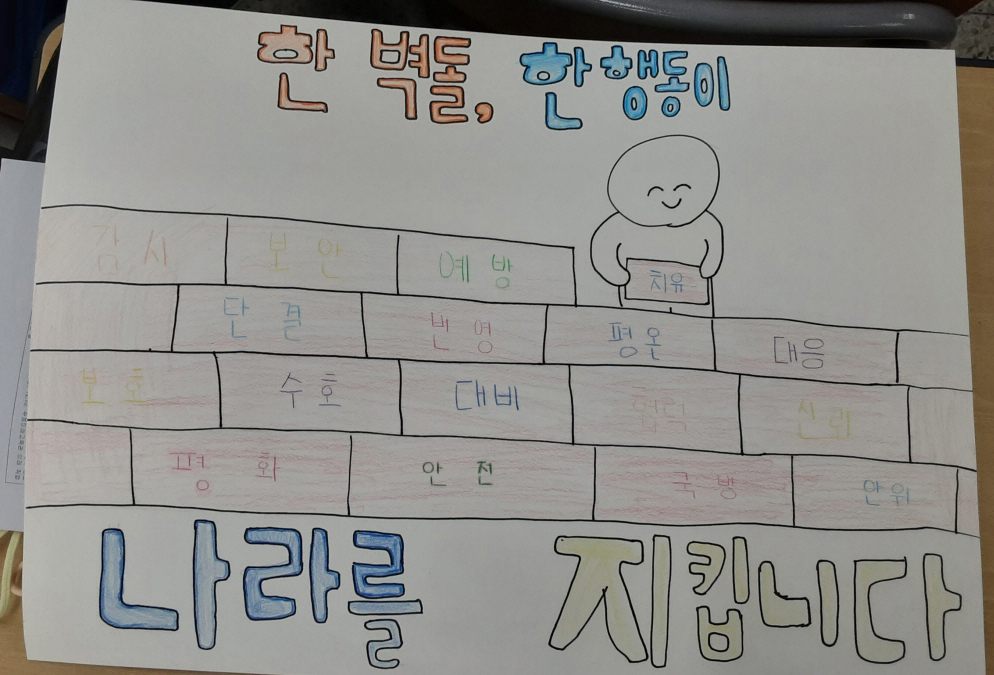 한 벽돌, 한 행동이
감시 보안 예방 치유
단결 번영 평온 대응
보호 수호 대비 협력 신뢰
평화 안전 국방 안위
나라를 지킵니다